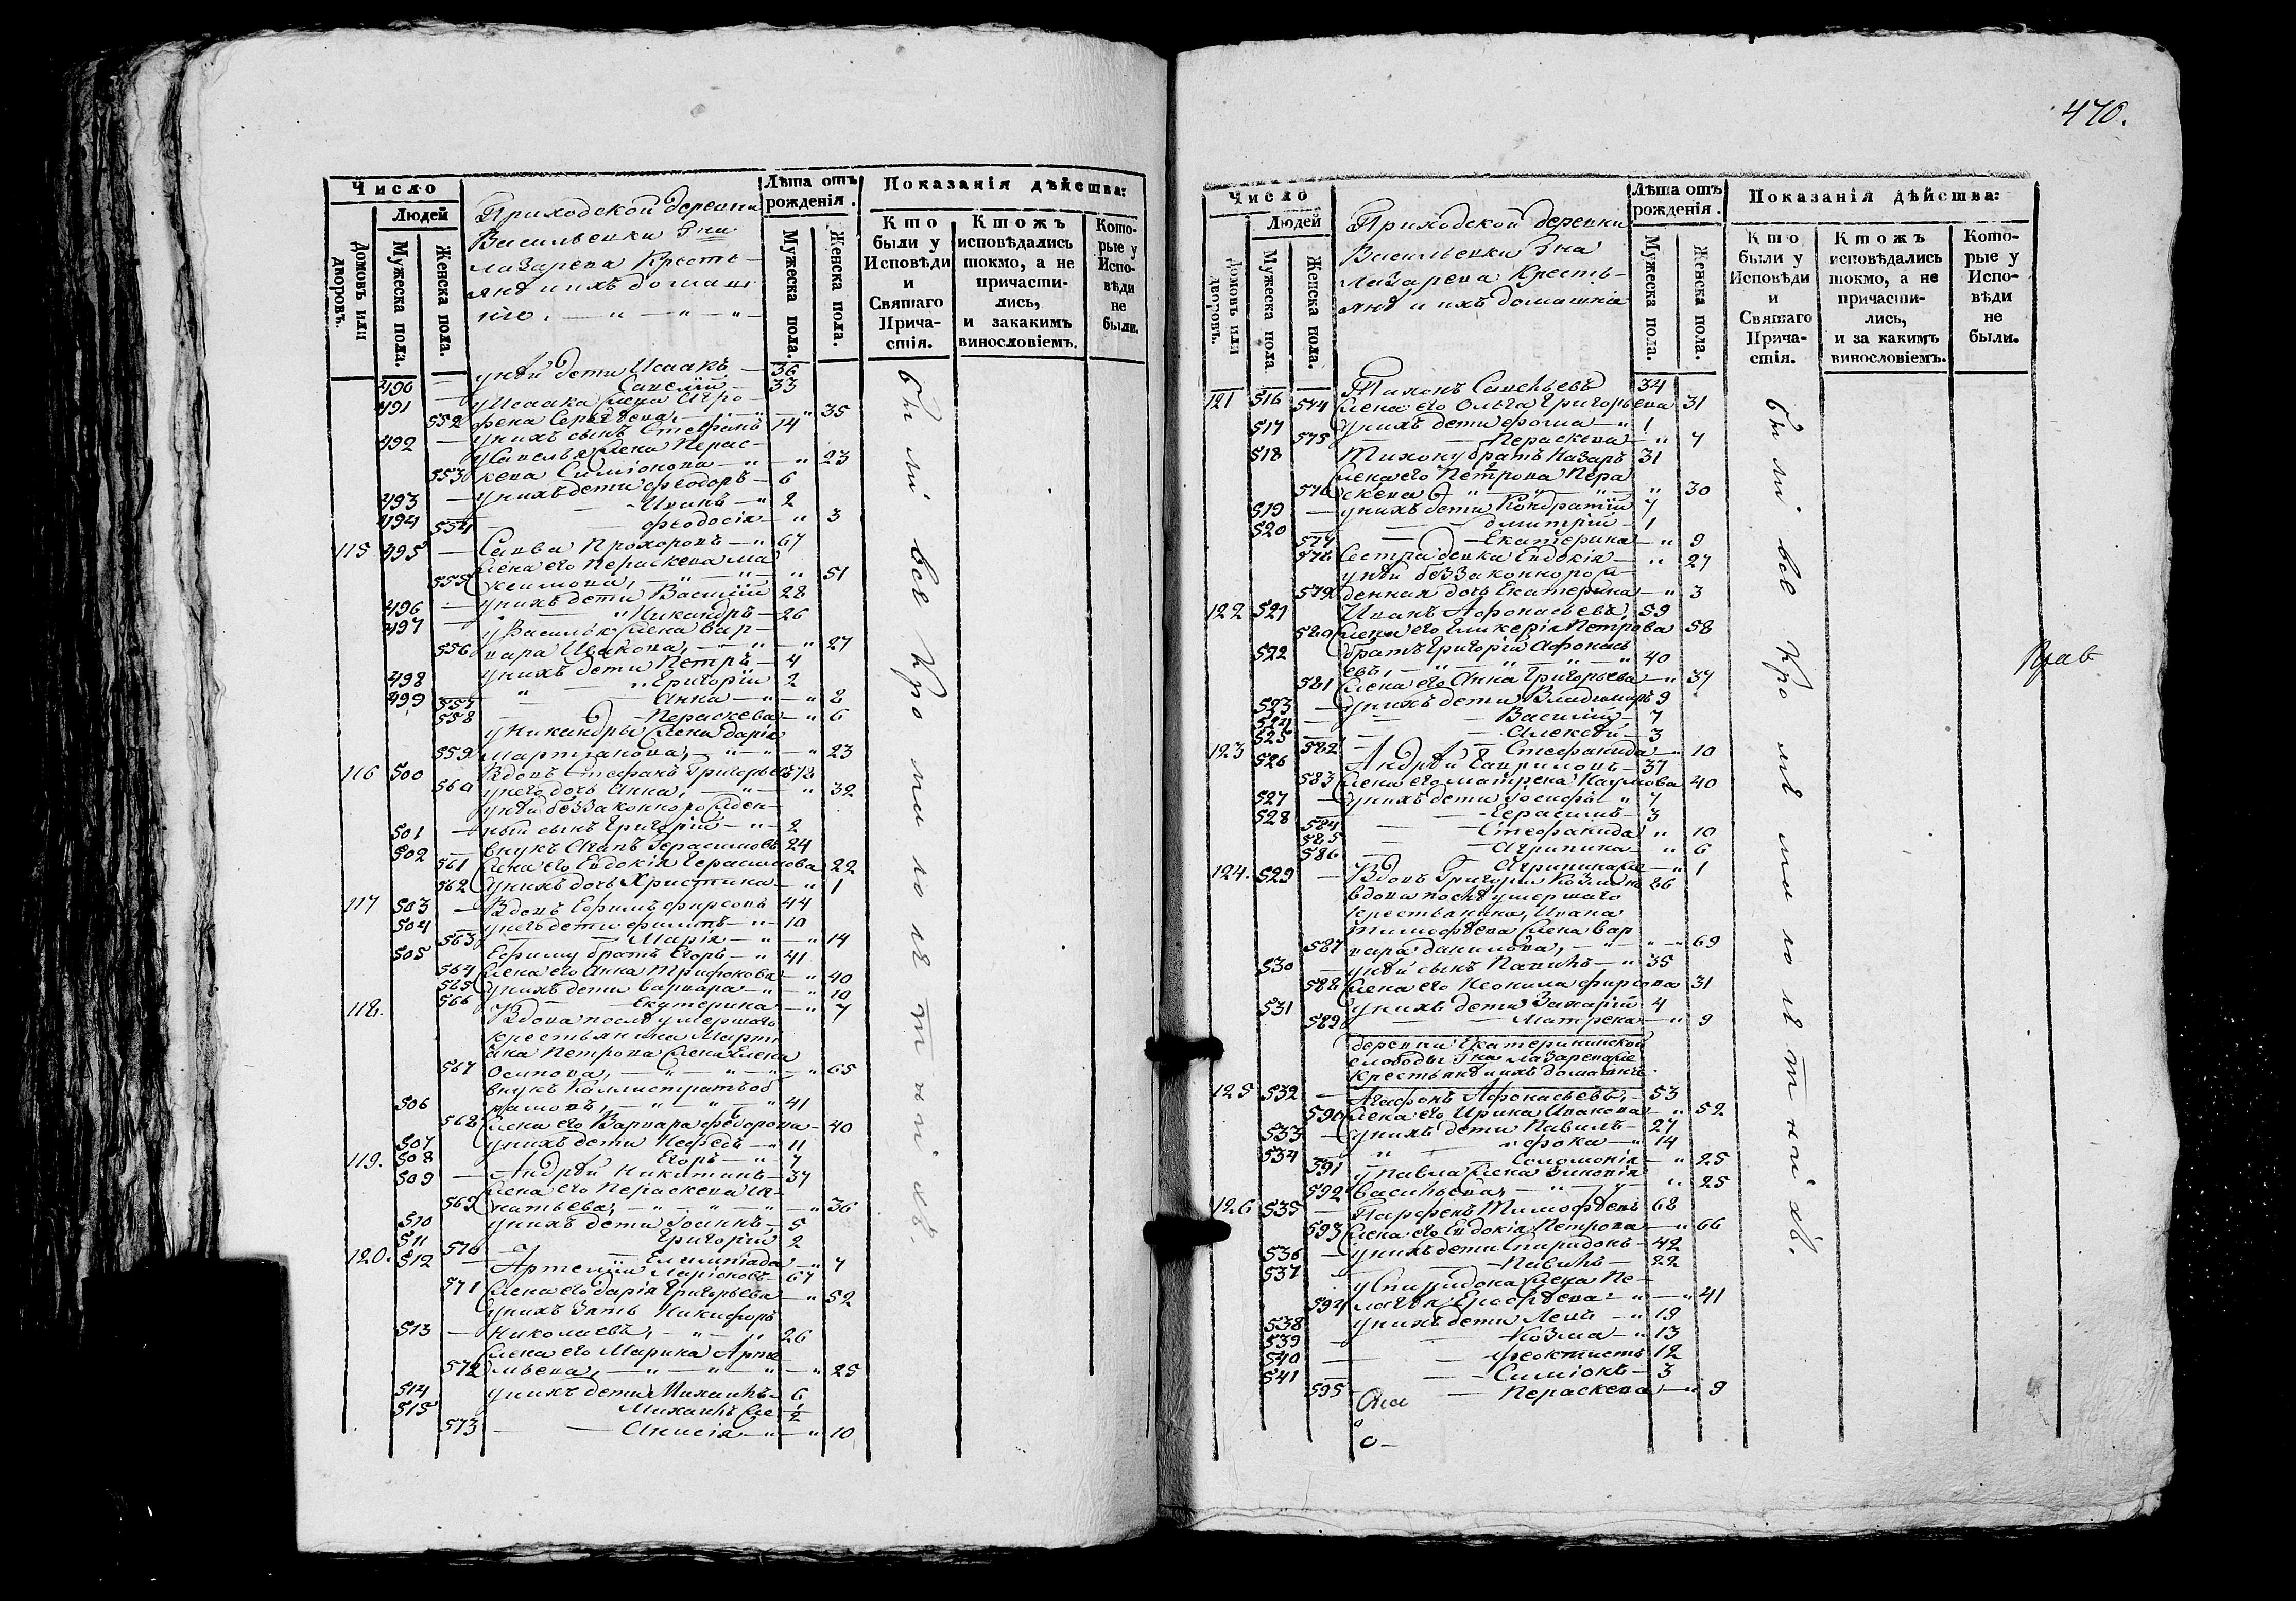 Число
Людей
Домовъ или дворовъ.
Мужеска пола.
Женска пола.
Приходской деревни
Васильевки Гна
Лазарева Кресть-
янѣ и ихъ домаш
нiе. — " — " — " —
Лѣта отъ рожденiя.
Мужеска пола.
Женска пола.
Показанiя дѣйства:
Кто были у Исповѣди и Святаго Прича- стiя.
Ктожъ исповѣдались токмо, а не причасти- лись, и закакимъ винословiемъ.
Кото- рые у Испо- вѣди не были.
490 — уней дети Исаакъ — 36
491 — Савелiй — 33
у Исаака жена Агро-
552 фена Сергѣева, — " — " 35
492 — унихъ сынъ Стефанъ 14
у Савелья жена Перас-
553 кева Симiонова — " — " 23
493 — унихъ дети Феодоръ — 6
494 — Иванъ — " 2
554 — Феодосiя — " 3
115 495 — Савва Прохоровъ — " 67
жена его Пераскева Ма
555 ксимова, — " — " — " 51
496 — унихъ дети Василiй 28
497 — " Никандръ — 26
у Василья жена Вар-
556 вара Иванова, — " — " 27
498 унихъ дети Петръ — 4
499 — " Григорiй 2
557 — " Анна — " — " 8
558 — Пераскева — " 6
у Никандры жена Дарiя
559 Мартианова, — " — " — " 23
116 500 Вдовъ Стефанъ Григорьевъ 73
560 унего дочь Анна, — " — " 32
уней беззаконно рожден-
501 — ный сынъ Григорiй — " — 2
502 — внукъ Иванъ Герасимовъ 24
561 жена его Евдокiя Герасимова 22
562 унихъ дочь Христина — " 1
117 503 — Вдовъ Ефимъ Фирсовъ 44
504 — унего дети Филипъ — " — 10
563 — Марiя — " — " 14
505 Ефиму братъ Егоръ — " 41
564 жена его Анна Трифонова — " 40
565 унихъ дети Варвара — " — " 10
566 — Екатерина — " 7
118. Вдова после умершаго
крестьянина Марти
ана Петрова жена Елена
567 Осипова, — " — " — " — " 65
внукъ Каллистратъ
506 — " — " — " 41
568 жена его Варвара Федорова — 40
507 унихъ дети Нефедъ — " 11
508 Егоръ — " 7
119. 509 — Андрей Никитинъ — 37
жена его Пераскева Иг-
569 натьева, — " — " — " 36
510 унихъ дети Iоаннъ — 5
511 Григорiй 2
570 — " 7
120. 512 — Артемiй Ларiоновъ — 67
571 жена его Дарiя Григорьева — " 52
унихъ зять Никифоръ
513 — Николаевъ, — " — " 26
жена его Марина Арте
572 мьева, — " — " — " — " 25
514 унихъ дети Михаилъ — 6
515 Михаилъ же ½
573 — Анисiя — " — " 10
Были все кроме малолетнихъ.
470.
Число
Людей
Домовъ или дворовъ.
Мужеска пола
Женска пола.
Приходской деревни
Васильевки Гна
Лазарева Кресть-
янѣ и ихъ домашнiе
Лѣта отъ рожденiя.
Мужеска пола.
Женска пола.
Показанiя дѣйства:
Кто были у Исповѣди и Святаго Прича- стiя.
Ктожъ исповѣдались токмо, а не причасти- лись, и за какимъ винословiемъ.
Кото- рые у Испо- вѣди не были.
121 516 Тихонъ Савельевъ 34
574 жена его Ольга Григорьева 31
517 унихъ дети Фома — " 1
575 — Пераскева — " 7
518 Тихону братъ Назаръ 31
жена его Петрова Пера
576 скева — " — " — " 30
519 — унихъ дети Кондратiй 7
520 — Дмитрiй — 1
577 — Екатерина — " 9
578 Сестра девка Евдокiя — " 27
уней беззаконно рож-
579 денная дочь Екатерина — " 3
122 521 Иванъ Афонасьевъ, 59
580 жена его Гликерiя Петрова 58
522 братъ Григорiй Афонась
евъ, — " — " — " 40
581 жена его Анна Григорьева — " 37
523 — унихъ дети Владимиръ 9
524 — Василiй — 7
525 — Алексей — 3
582 — Стефанида — " 10
123 526 Андрей Гавриловъ — 37
583 жена его Матрена Наумова 40
527 — унихъ дети Iосифъ — " 7
528 — Герасимъ — 3
584 — Стефанида " 10
585 — Агрипина — " 6
586 — Агрипина же — " 1
124. 529 — Вдовъ Григорiй Козминъ 66
вдова после умершаго
крестьянина, Ивана
Тимофеева жена Вар
587 вара Данилова, — " — " — " 69
530 — уней сынъ Павилъ — " 35
588 жена его Неонила Фирсова 31
531 унихъ дети Захарiй 4
589 — Матрена — " 9
деревни Екатерининской
слободы Гна Лазарева же
крестьянѣ и ихъ домашнiе.
125 532 — Агафонъ Афонасьевъ, — 53
590 жена его Ирина Иванова — " 52
533 — унихъ дети Павилъ — 27
534 " — " Фока — " 14
591 — Соломонiя — " 25
у Павла жена Зиновiя
592 Васильева, — " — " — " 25
126 535 — Парфенъ Тимофеевъ 68
593 жена его Евдокiя Петрова — " 66
536 — унихъ дети Спиридонъ — 42
537 — Павилъ — 22
у Спиридона жена Пе-
594 лагея Ерофеева — " — " 41
538 унихъ дети Левъ — " 19
539 — Козма — " 13
540 — Феоктистъ 12
541 — Симiонъ — 3
595 — Пераскева — " 9
Были все кроме малолетнихъ.